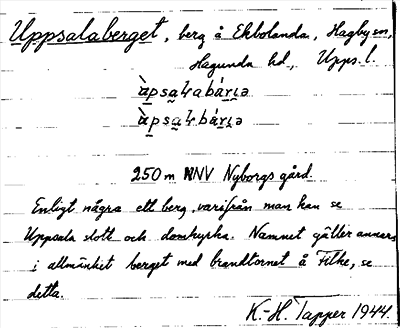 Uppsalaberget, berg å Ekbolanda, Hagby sn,
Hagunda hd, Upps. l.
250 m NNV Nyborgs gård.
Enligt några ett berg, varifrån man kan se
Uppsala slott och domkyrka. Namnet gäller annars
i allmänhet berget med brandtornet å Filke, se
detta.
K.-H. Tapper 1944.